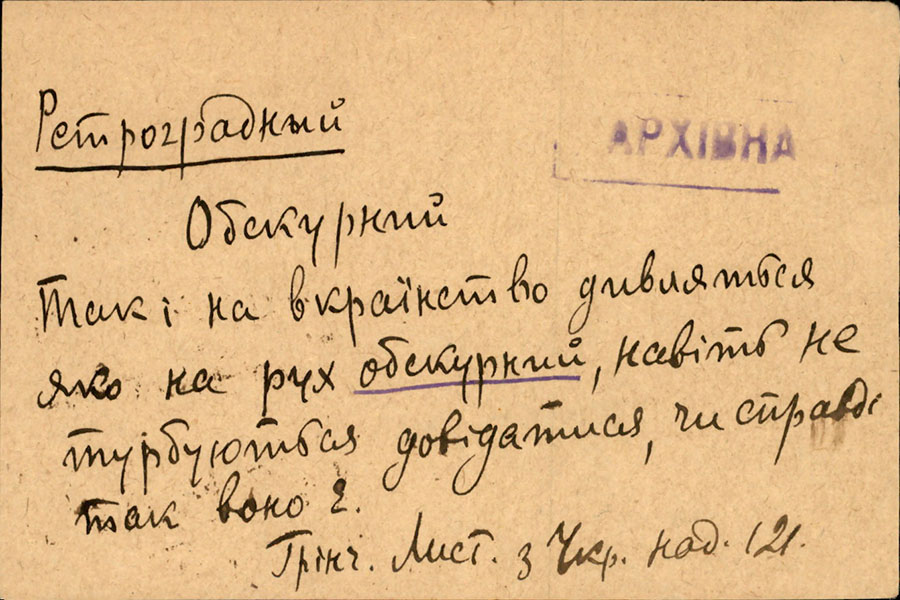 Ретроградный
АРХІВНА
Обскурний
Так і на вкраїнство дивляться
яко на рух обскурний, навіть не
турбуються довідатися, чи справді
так воно є.
Грінч. Лист. з Укр. над. 121.